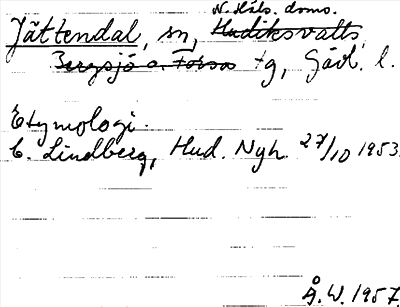 N. Häls. doms.
Jättendal, sn, Hudiksvalls
Bergsjö o. Forsa tg, Gävl. l.
Etymologi.
E. Lindberg, Hud. Nyh. 27/10 1953.
Å. W. 1957.